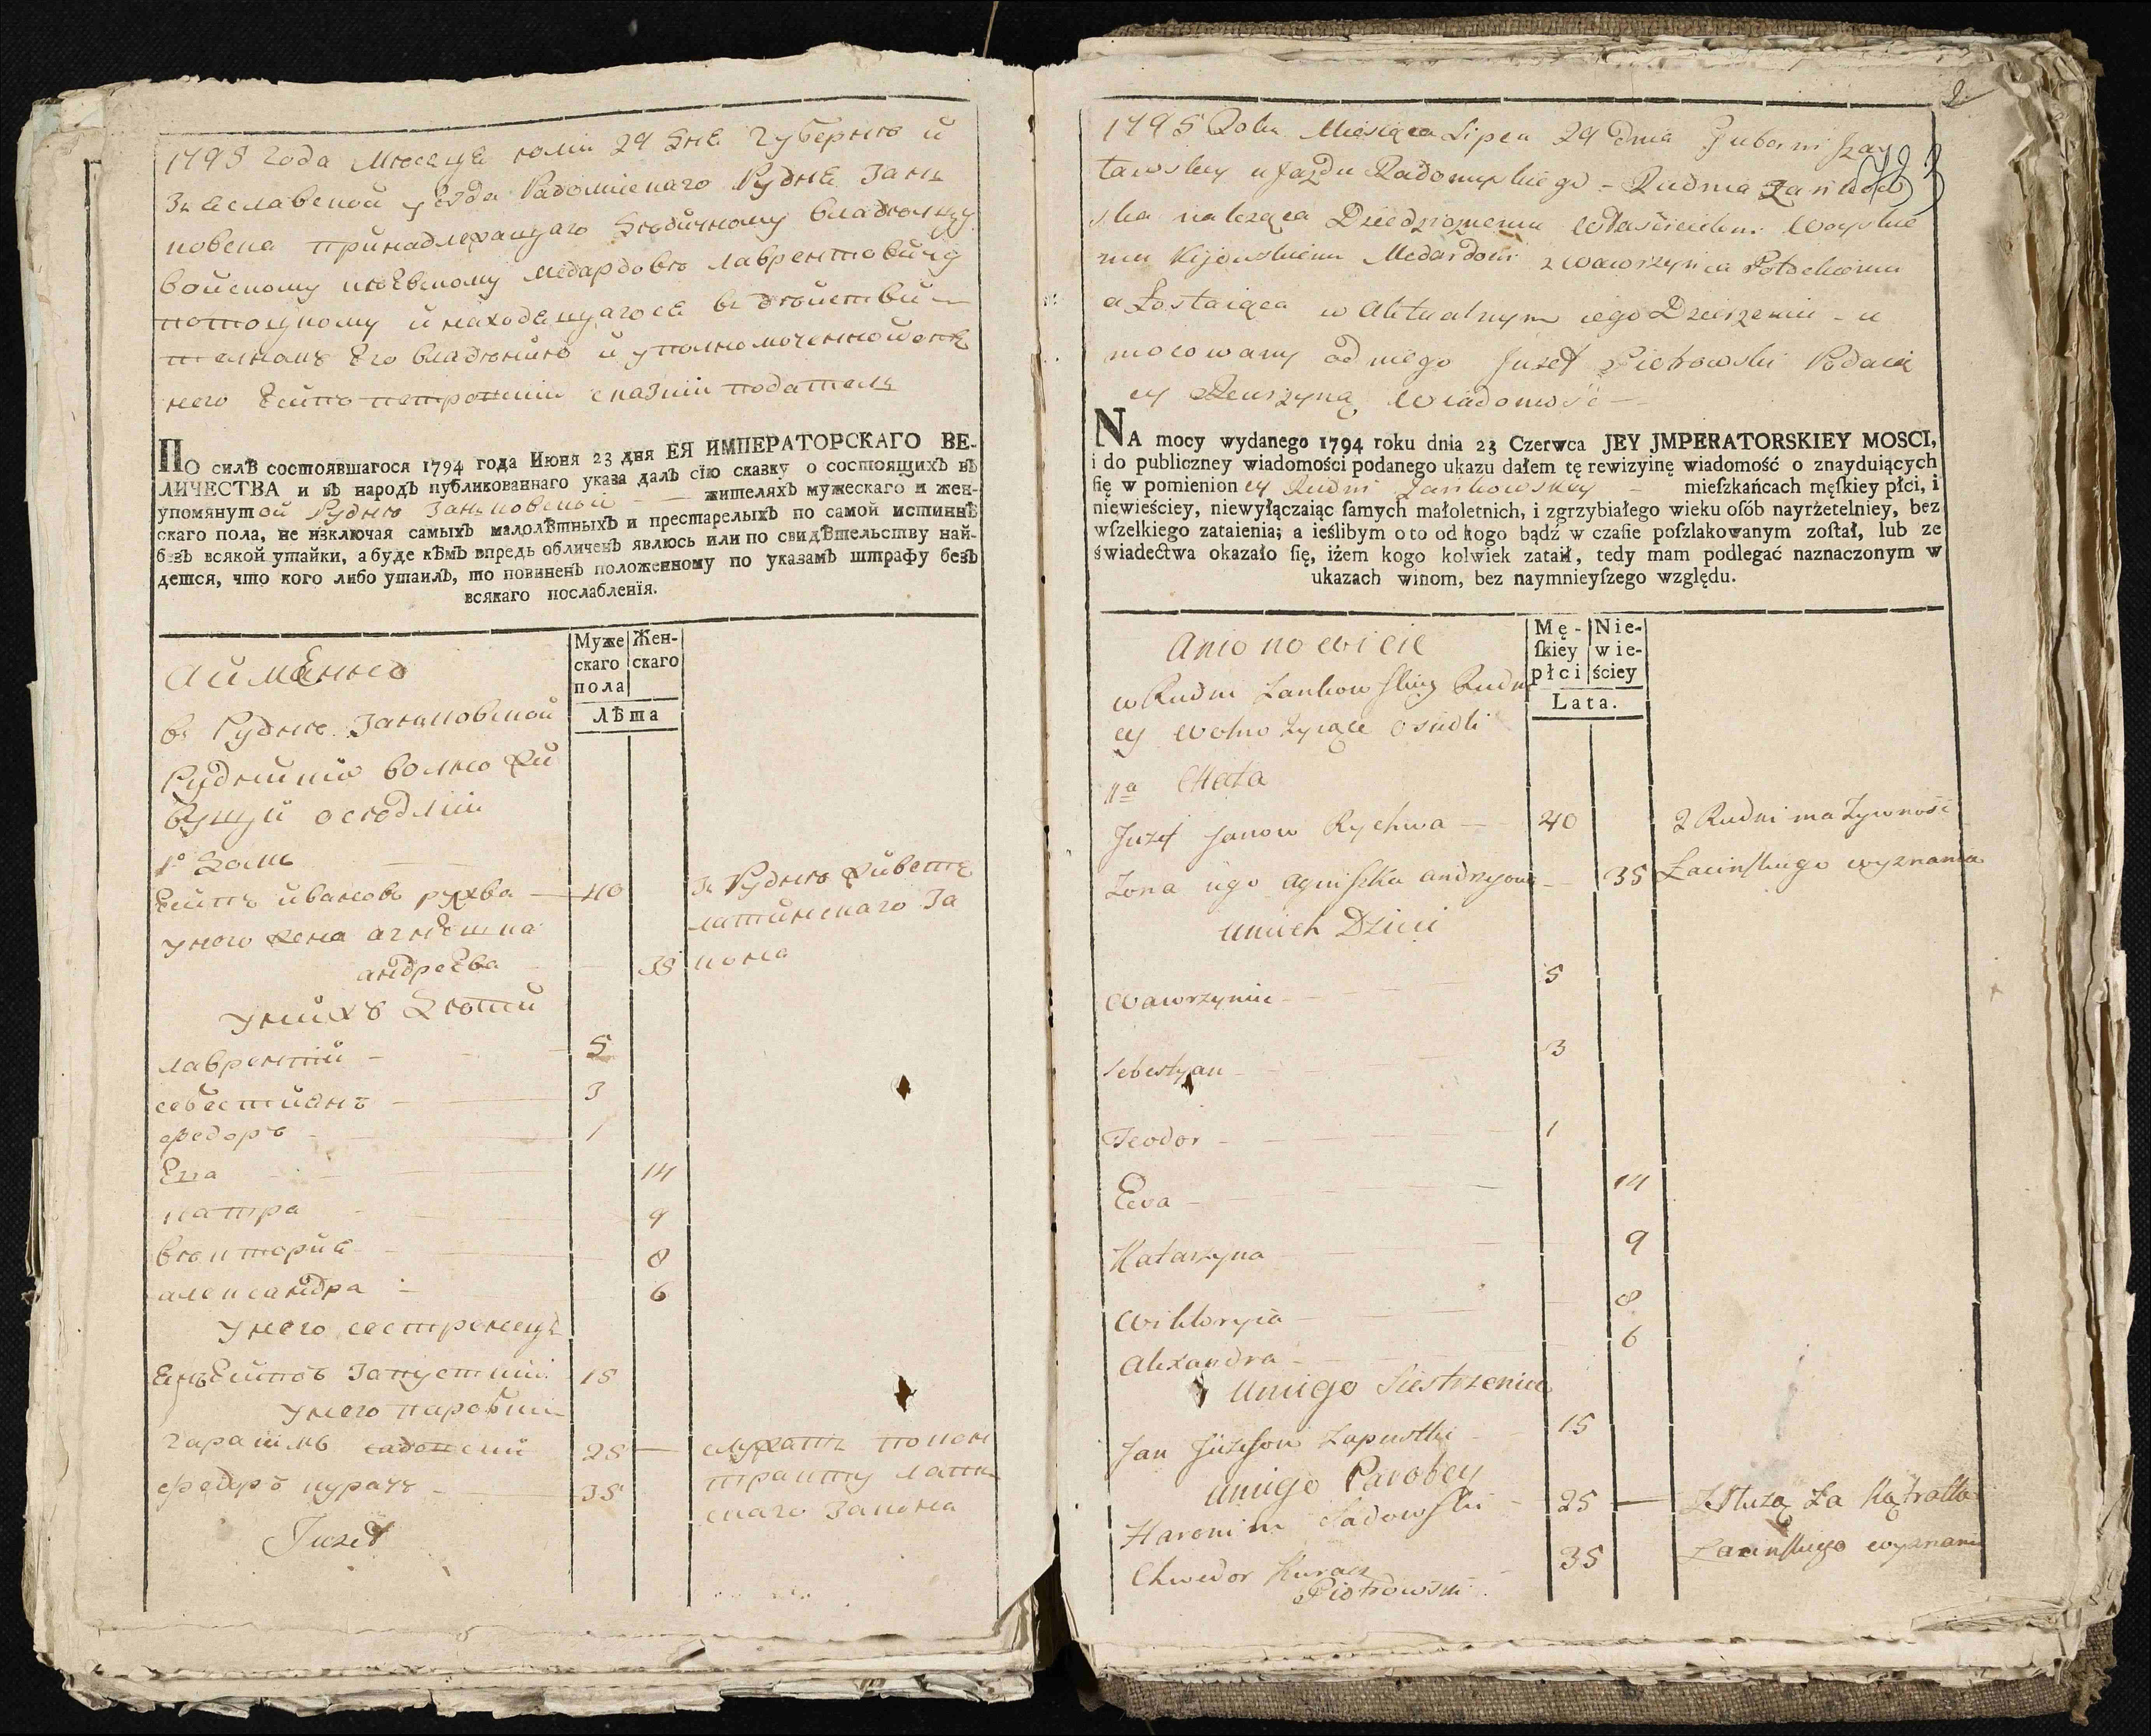 1795 года Мѣсяца юлія 29 дня Губерніи и
Зяславской уезда Радомiскаго Рудня Зань
ковска принадлежащаго дѣдичному владѣльцу
войскому кіевскому Медардовѣ Лаврентовичу
потоцкому и находящагося в дѣйстви
тельномъ его владѣніи и уполномоченной отъ
него есипъ петровскій сказки податель
ПО силѣ состоявшагося 1794 года Июня 23 дня ЕЯ ИМПЕРАТОРСКАГО ВЕ-
ЛИЧЕСТВА и въ народъ публикованнаго указа далъ сїю сказку о состоящихъ въ
упомянутой Руднѣ Заньковской жителяхъ мужескаго и жен-
скаго пола, не изключая самыхъ малолѣтныхъ и престарелыхъ по самой истиннѣ
безъ всякой утайки, а буде кѣмъ впредь обличенъ явлюсь или по свидѣтельству най-
дется, что кого либо утаилъ, то повиненъ положенному по указамъ штрафу безъ
всякаго послабленїя.
Муже Жен-
скаго скаго
пола
Лѣта
а имянно
в Руднѣ Заньковской
Рудники волно жи
вущи оседліи
1º домъ
Есипъ ивановъ рухва 40 Зъ Рудни живетъ
у него жена агнешка латинскаго За
андреева 35 кона
у нихъ дѣти
лаврентій 5
себестиянъ 3
федоръ 1
Ева 14
катра 9
вѣктория 8
александра 6
у него сестренецъ
Янъ Есиповъ Запусткій 15
у него паробки
Гарасимъ садовскій 25 служатъ по кон
федоръ курачъ 35 тракту латин
скаго Закона
Juzef
2
1795 Roku Miesiąca Lipca 29 dnia Guberni Izay
sławskiey ujazdu Radomyskiego - Rudnia Zańkow
ska należąca Dziedzicznemu Właścicielowi Woyskie
mu Kijowskiemu Medardowi z Wawrzynca Potockiemu
a Zostaiąca w Aktualnym iego Dzierżeniu - u
mocowany od niego Juzef Piotrowski Podaie
ey Rewizyiną Wiadomość
NA mocy wydanego 1794 roku dnia 23 Czerwca JEY JMPERATORSKIEY MOSCI,
i do publiczney wiadomości podanego ukazu dałem tę rewizyinę wiadomość o znayduiących
ſię w pomienioney Rudni Zańkowskiey mieſzkańcach męſkiey płci, i
niewieściey, niewyłączaiąc ſamych małoletnich, i zgrzybiałego wieku oſób nayrżetelniey, bez
wſzelkiego zataienia; a ieślibym o to od kogo bądź w czaſie poſzlakowanym zoſtał, lub ze
świadectwa okazało ſię, iżem kogo kolwiek zataił, tedy mam podlegać naznaczonym w
ukazach winom, bez naymnieyſzego względu.
Mę- Nie-
ſkiey wie-
płci ściey
Lata.
a mionowicie
w Rudni Zankowſkiey Rudni
cy wolno żyiące osiedli
1a Chata
Juzef Janow Rychwa 40 z Rudni ma Zywność
Zona iego agniſzka andrzyowa 35 Łacinſkiego wyznania
u nich Dzieci
Wawrzyniec 5
sebestyan 3
Teodor 1
Ewa 14
Katarzyna 9
Wiktoryia 8
Alexandra 6
u niego Siestrzeniec
Jan Jüzefow Zapustki 15
u niego Parobcy
Haronim Sadowſki 25 Służą Za Kątraktem
Chwedor Kuracz 35 Łacinſkiego wyznania
Piotrowski